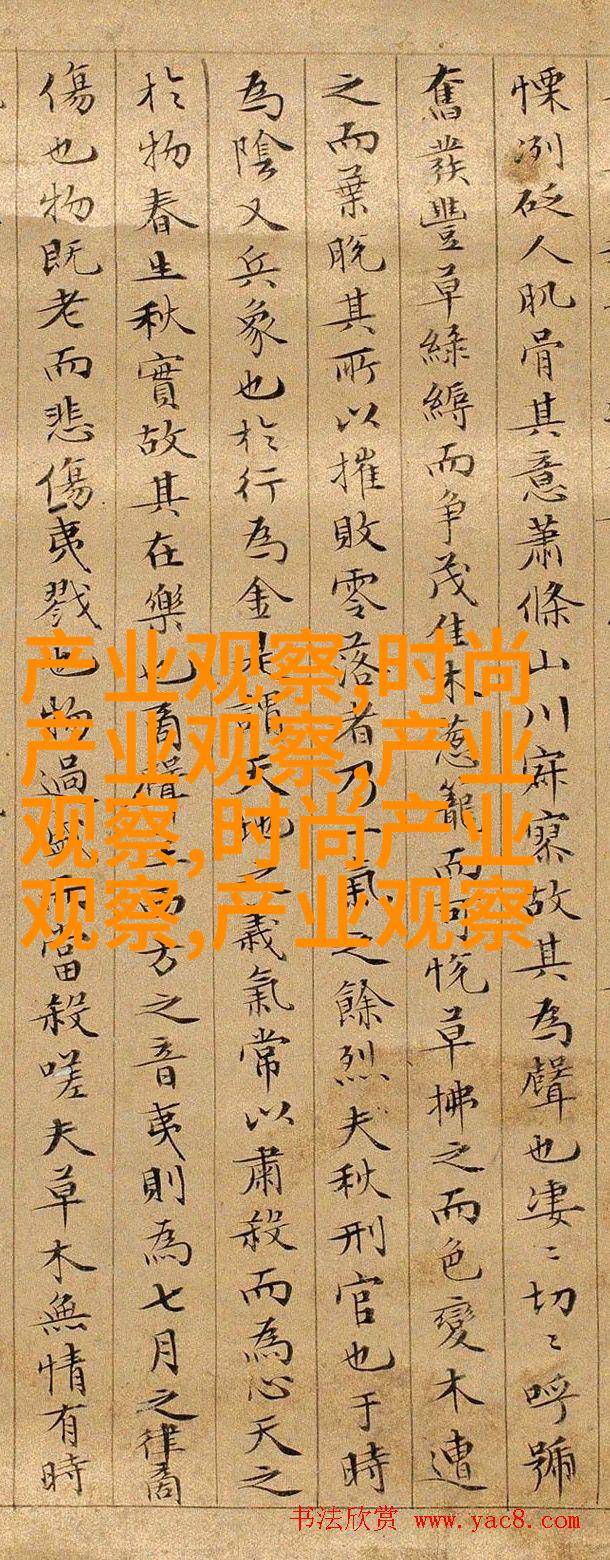 慄冽砭人肌骨其意蕭條山川寂寥故其為聲也凄〻切〻呼號
奮發豐草綠縟而争茂佳木葱籠而可悅草拂之而色變木遭
之而葉脫其所以摧敗零落者乃一氣之餘烈夫秋刑官也于時
為陰又兵象也於行為金是謂天地之義氣常以肅殺而為心天之
於物春生秋實故其在樂也商聲主西方之音夷則為七月之律商
傷也物既老而悲傷夷戮也物過盛而當殺嗟夫草木無情有時
产业观察,时尚
产业观察,产业
观察,时尚产业
观察,产业观察
书法欣赏 www.yac8.com